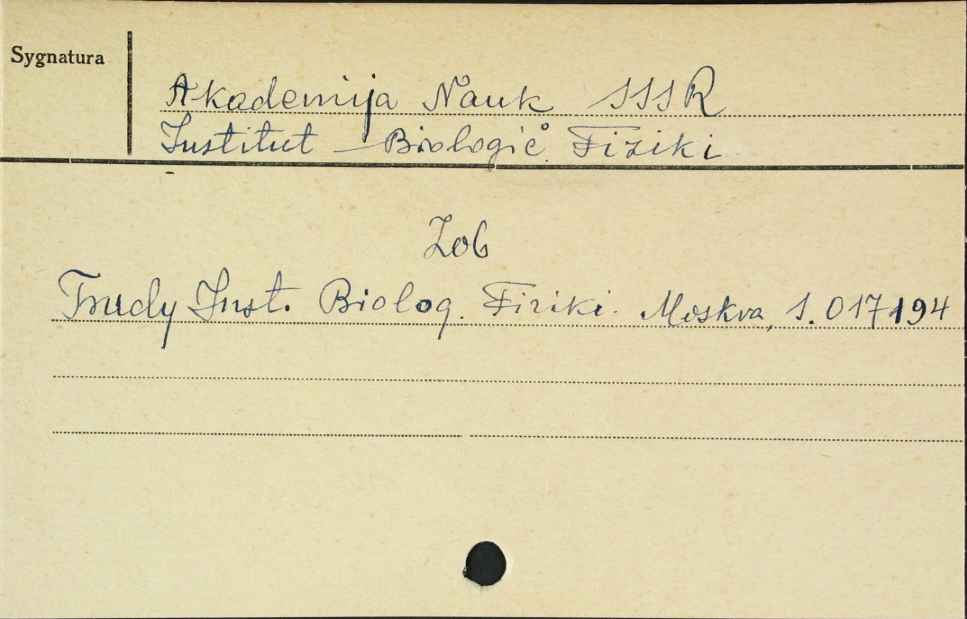 Sygnatura
Akademija Nauk SSSR
Institut Biologič. Fiziki
Zob
Trudy Inst. Biolog. Fiziki. Moskva, S. 017194